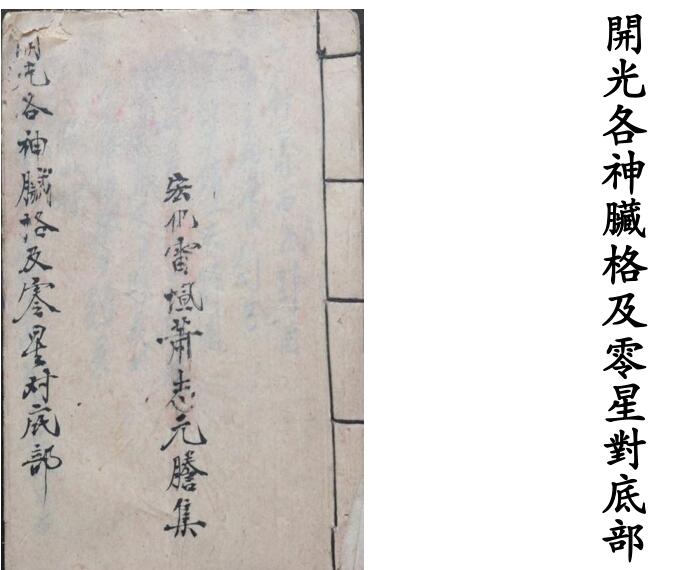 開光各神臟格及零星對底部
宏化雷壇蕭志元謄集
開光各神臟格及零星对底部